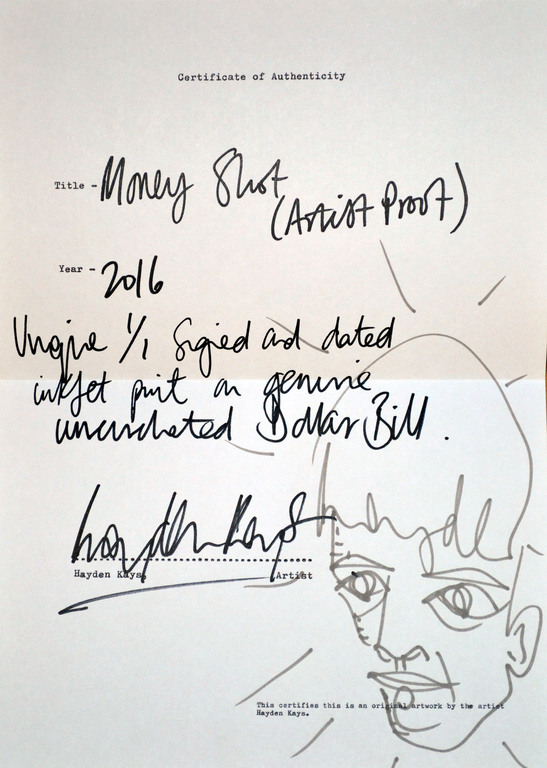 Certificate of Authenticity
Title - Money Shot
(Artist Proof)
Year - 2016
Unqiue 1/1 Signed and dated
inkjet print on genuine
uncirculated Dollar Bill.
Hayden Kays
Hayden Kays, Artist
This certifies this is an original artwork by the artist
Hayden Kays.